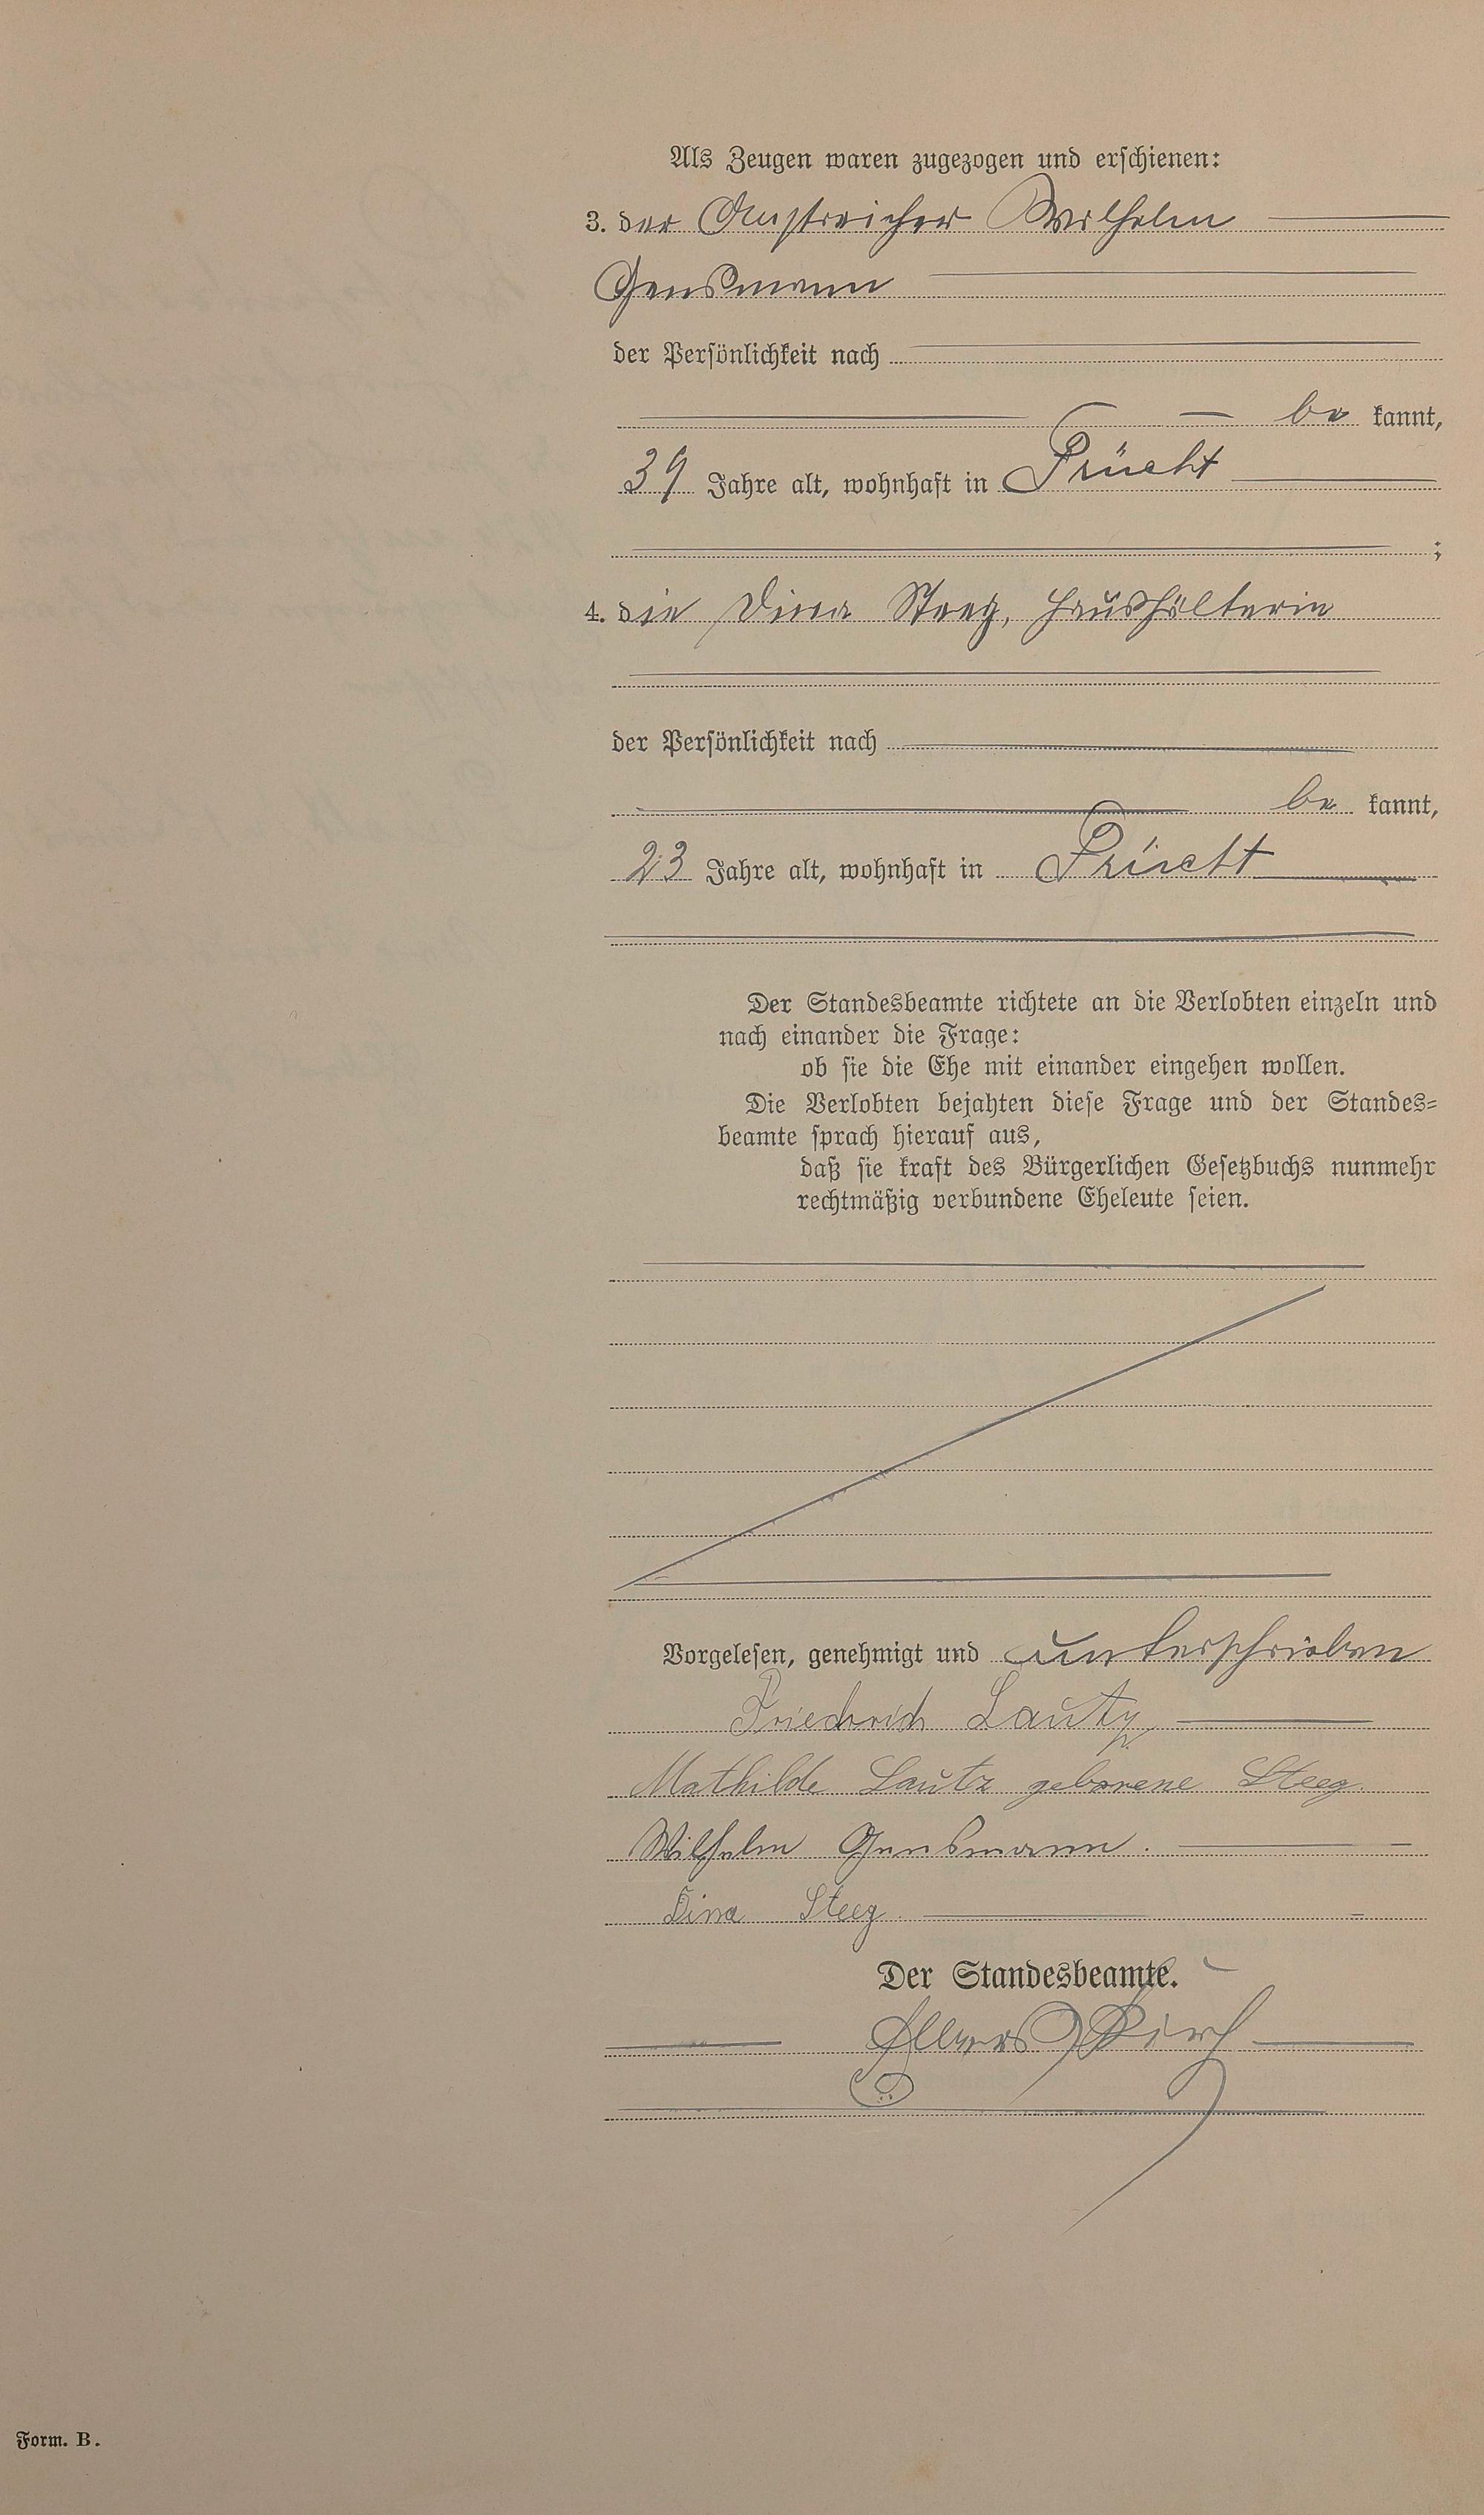 Als Zeugen waren zugezogen und erschienen:
3. der Anstreicher Wilhelm
Gensmann
der Persönlichkeit nach
be kannt,
39 Jahre alt, wohnhaft in Frücht
;
4. die Dina Steeg, Haushälterin
der Persönlichkeit nach
be kannt,
23 Jahre alt, wohnhaft in Frücht
Der Standesbeamte richtete an die Verlobten einzeln und
nach einander die Frage:
ob sie die Ehe mit einander eingehen wollen.
Die Verlobten bejahten diese Frage und der Standes=
beamte sprach hierauf aus,
daß sie kraft des Bürgerlichen Gesetzbuchs nunmehr
rechtmäßig verbundene Eheleute seien.
Vorgelesen, genehmigt und unterschrieben
Friedrich Lautz
Mathilde Lautz geborene Steeg.
Wilhelm Gensmann.
Dina Steeg.
Der Standesbeamte.
Form. B.